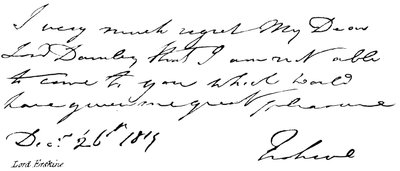 I very much regret My Dear
Lord Darnley that I am not able
to come to you which would
have given me great pleasure
Decr. 26th 1819
Erskine
Lord Erskine